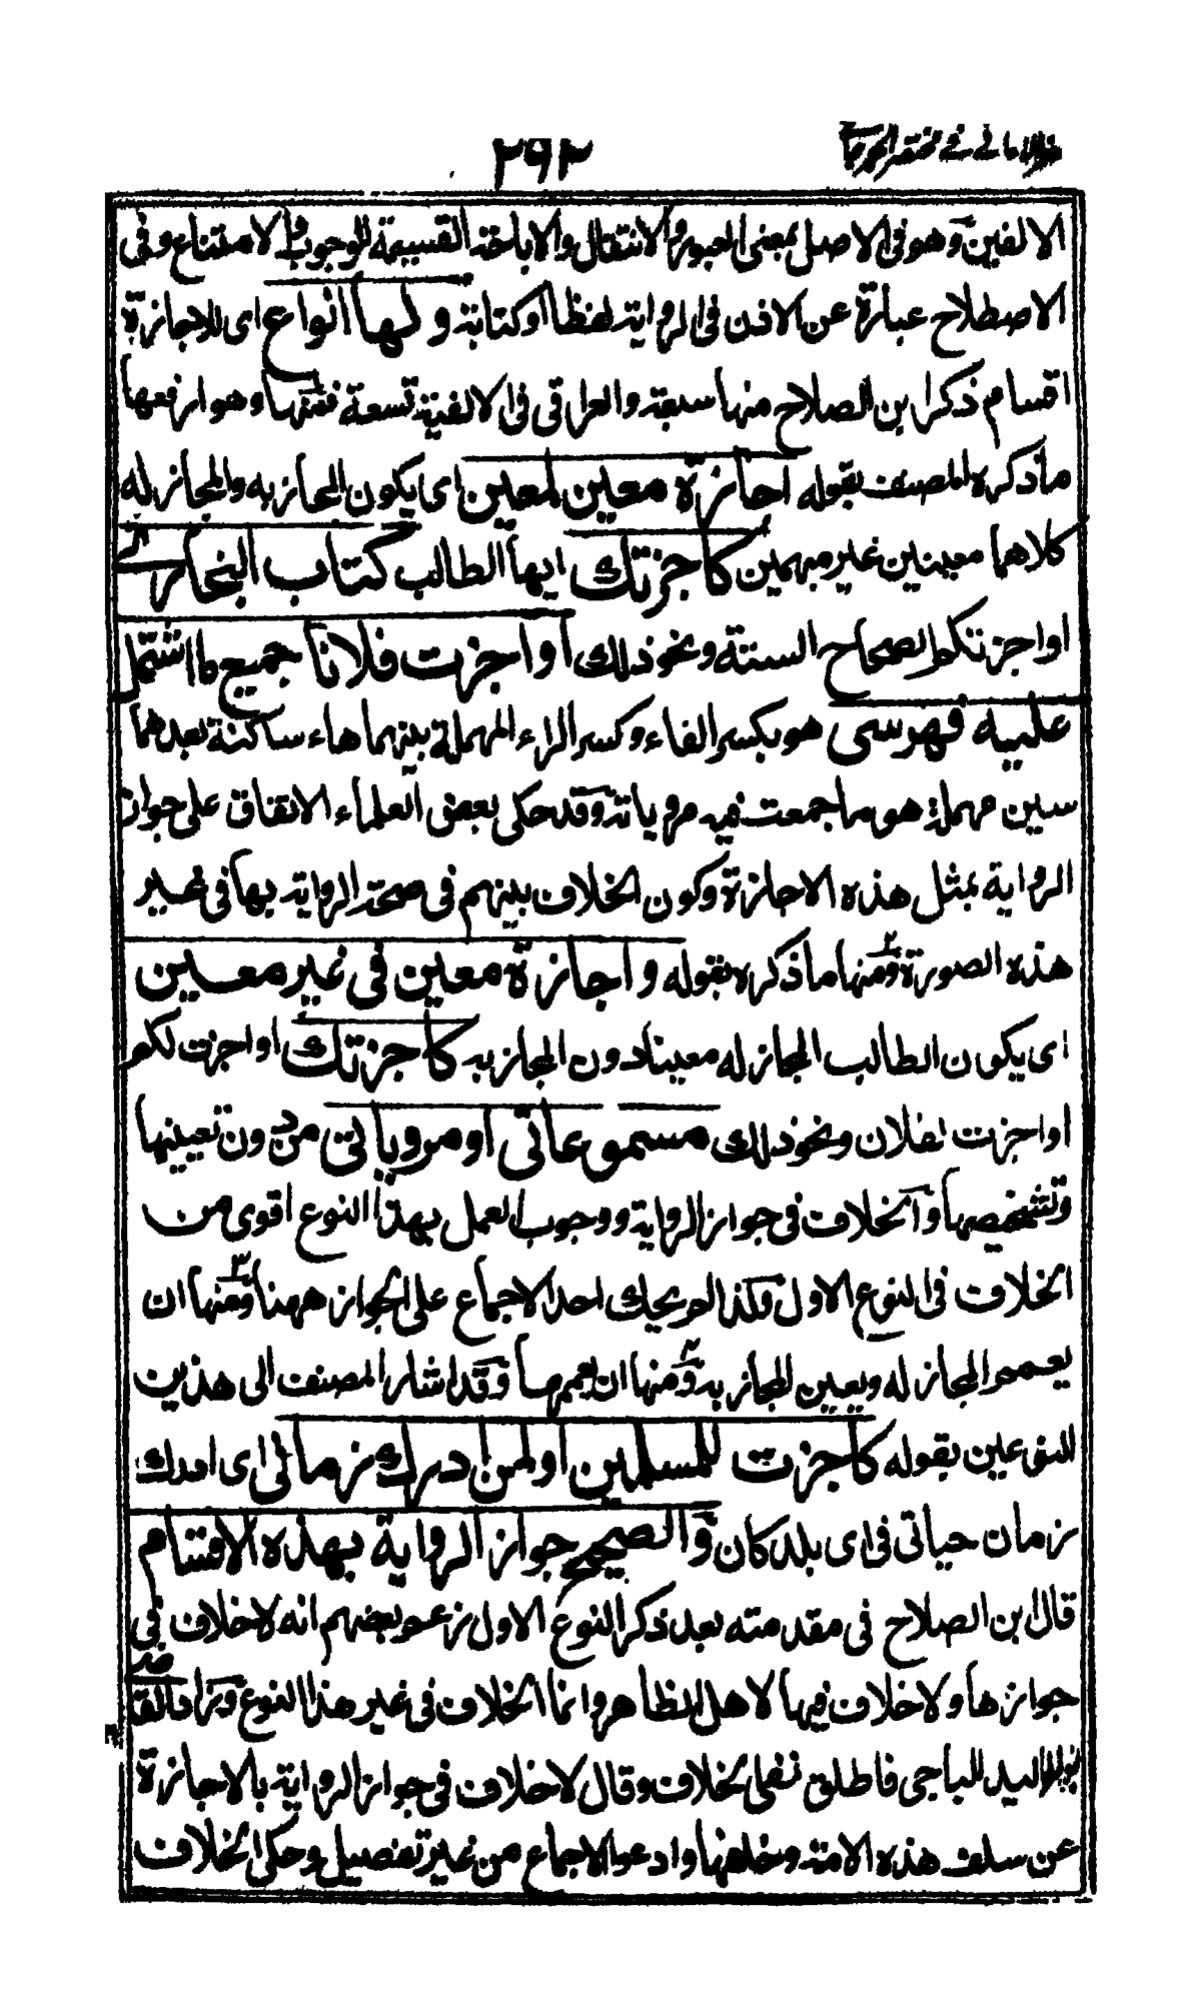 ظفر الاماني في مختصر الجرجاني
٢٦٢
الالفين وهو فى الاصل بمعنى العبور والانتقال والاباحة القسيمة للوجوب والامتناع وفى
الاصطلاح عبارة عن الاذن فى الرواية لفظا او كتابة ولها انواع اى للاجازة
اقسام ذكر ابن الصلاح منها سبعة والعراقى فى الالفية تسعة فمنها وهو ارفعها
ما ذكره المصنف بقوله اجازة معين لمعين اى يكون المجاز به والمجاز له
كلاهما معينين غير مبهمين كاجزتك ايها الطالب كتاب البخارى
او اجزتكم الصحاح الستة ونحو ذلك او اجزت فلانا جميع ما اشتمل
عليه فهرسى هو بكسر الفاء وكسر الراء المهملة بينهما هاء ساكنة بعدهما
سين مهملة هو ما جمعت فيه مروياته وقد حكى بعض العلماء الاتفاق على جواز
الرواية بمثل هذه الاجازة وكون الخلاف بينهم فى صحة الرواية بها فى غير
هذه الصورة ٢ ومنها ما ذكره بقوله واجازة معين فى غير معين
اى يكون الطالب المجاز له معينا دون المجاز به كاجزتك او اجزت لكم
او اجزت لفلان ونحو ذلك مسموعاتى او مروياتى من دون تعيينها
وتشخصها والخلاف فى جواز الرواية ووجوب العمل بهذا النوع اقوى من
الخلاف فى النوع الاول ولذا لم يحك احد الاجماع على الجواز ههنا ٣ ومنها ان
يعمم المجاز له ويعين المجاز به ٤ ومنها ان يعمهما وقد اشار المصنف الى هذين
النوعين بقوله كاجزت للمسلمين او لمن ادرك زمانى اى ادرك
زمان حياتى فى اى بلد كان والصحيح جواز الرواية بهذه الاقسام
قال ابن الصلاح فى مقدمته بعد ذكر النوع الاول زعم بعضهم انه لا خلاف فى
جوازها ولا خلاف فيها لاهل الظاهر وانما الخلاف فى غير هذا النوع وزاد القاضى
ابو الوليد الباجى فاطلق نفى الخلاف وقال لا خلاف فى جواز الرواية بالاجازة
عن سلف هذه الامة وخلفها وادعوا الاجماع من غير تفصيل وحكى الخلاف